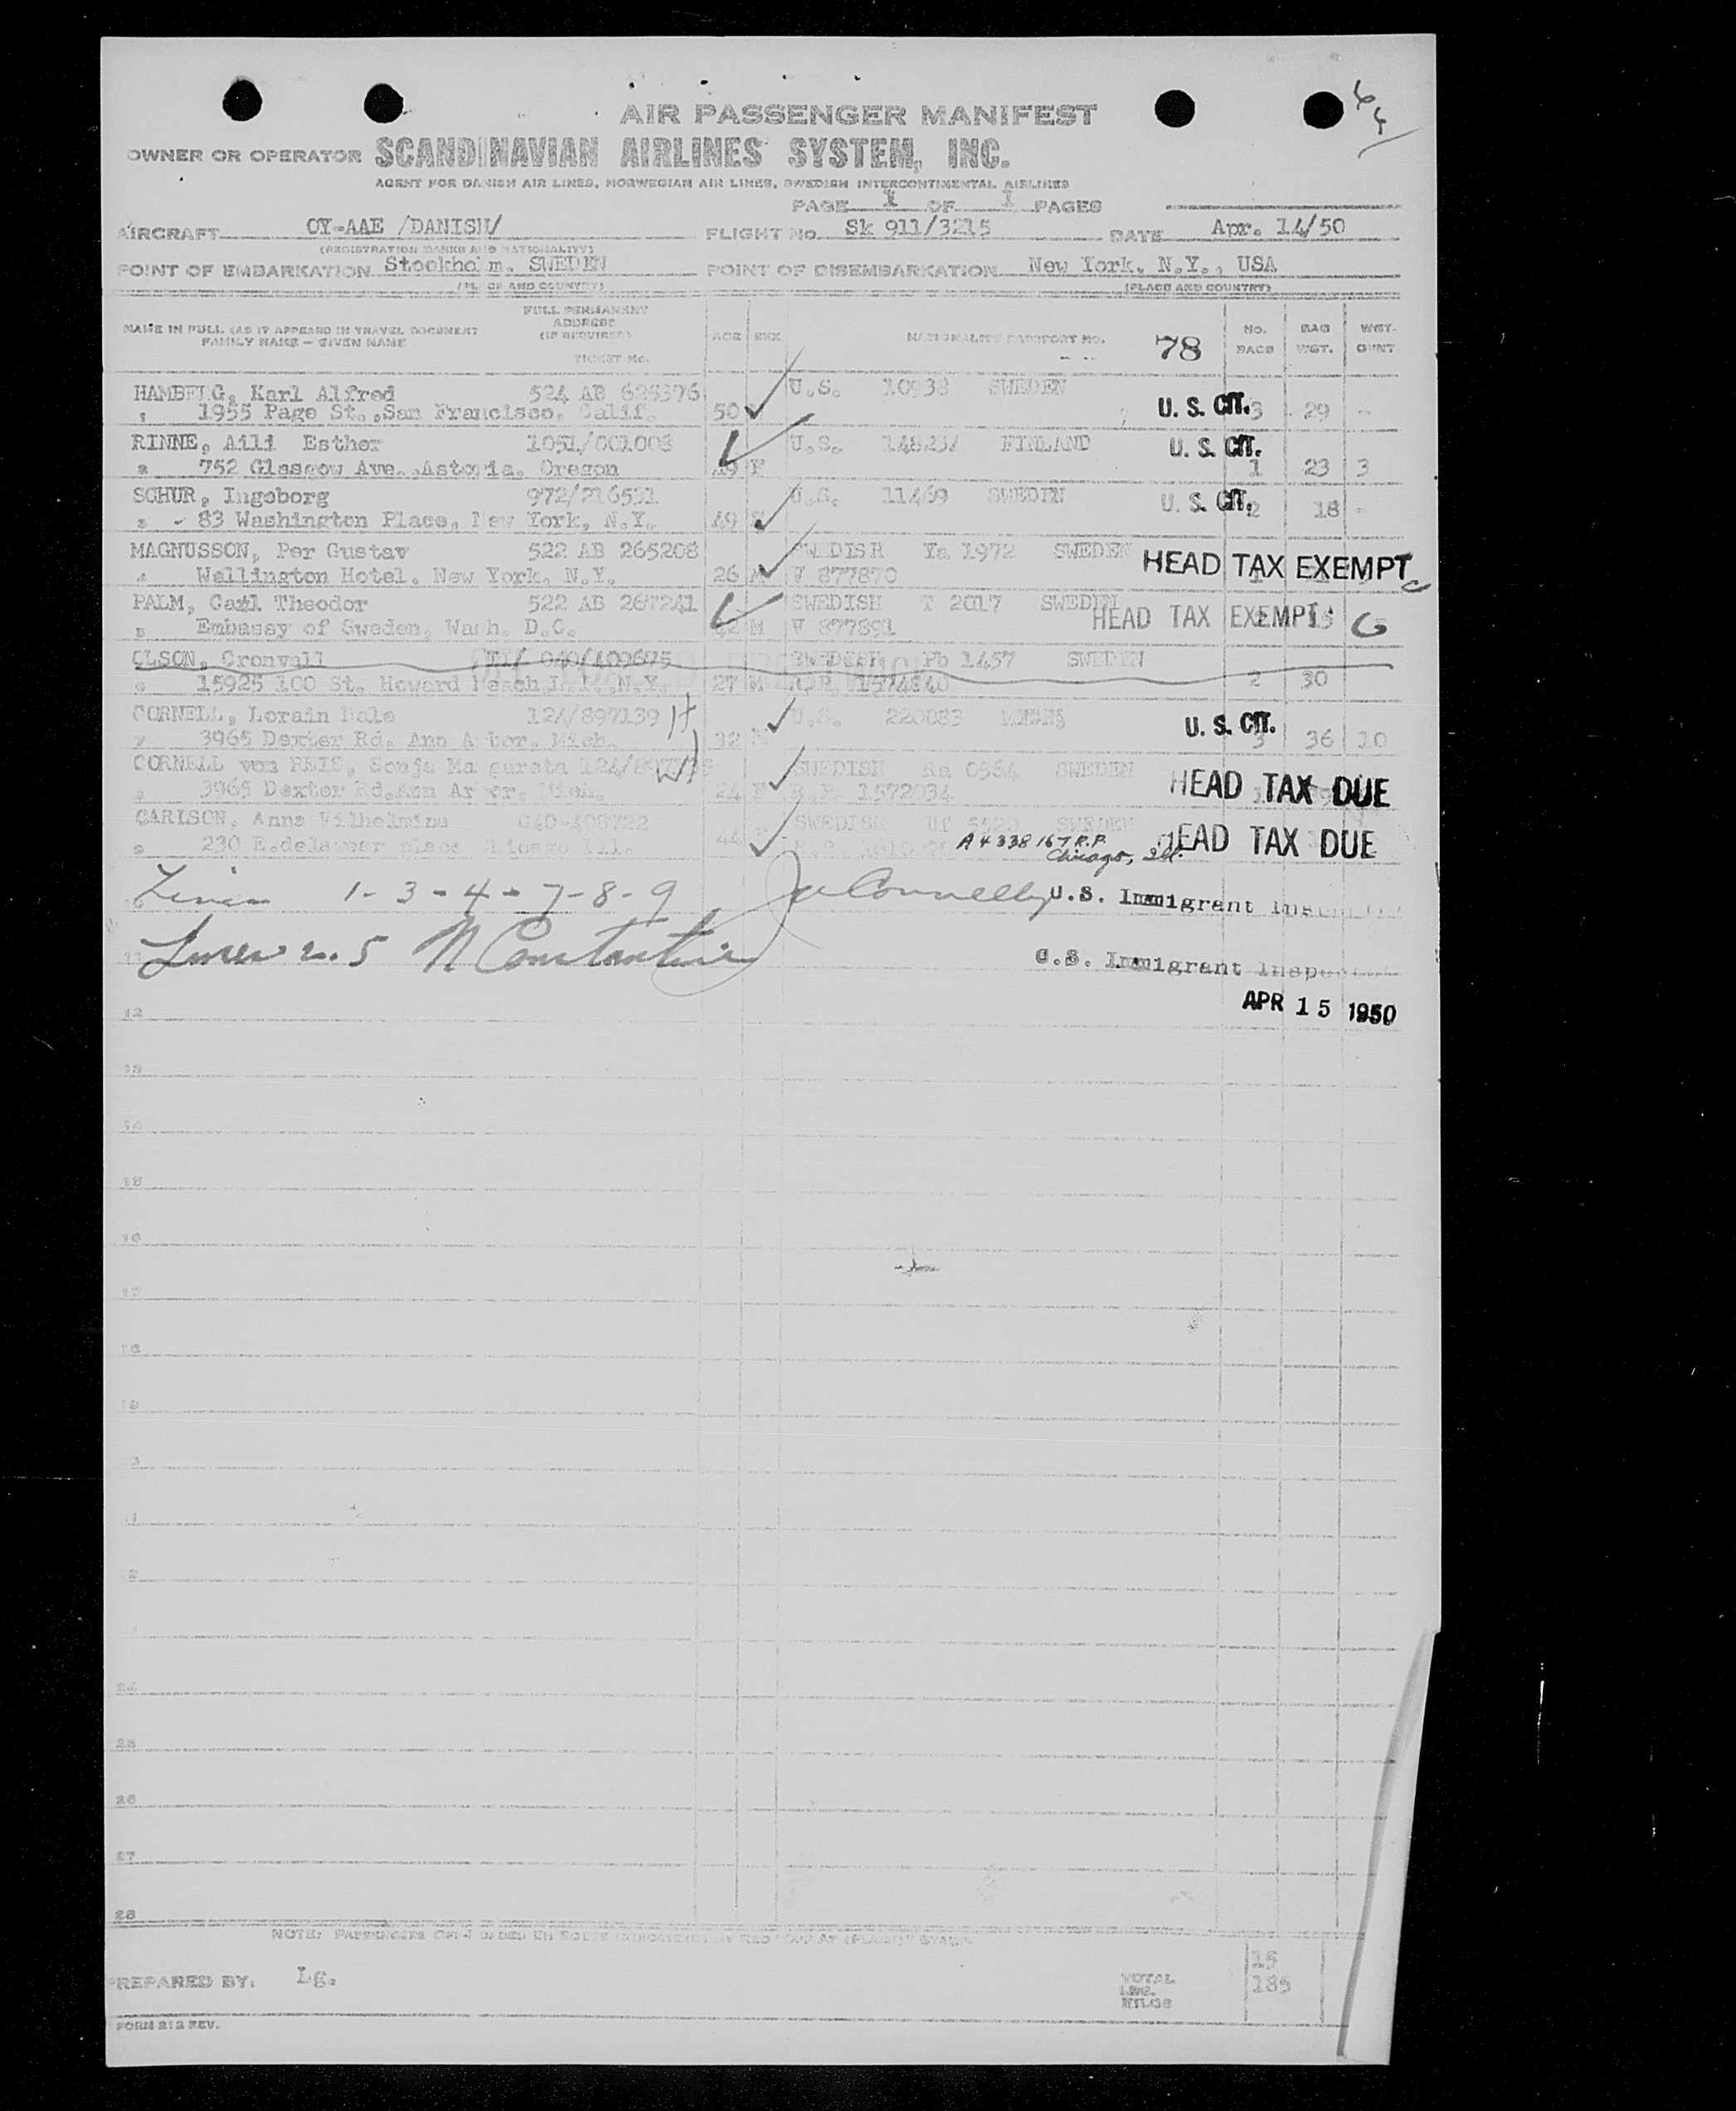 AIR PASSENGER MANIFEST
OWNER OR OPERATOR SCANDINAVIAN AIRLINES SYSTEM, INC.
AGENT FOR DANISH AIR LINES, NORWEGIAN AIR LINES, SWEDISH INTERCONTINENTAL AIRLINES
PAGE 1 OF 1 PAGES
AIRCRAFT OY-AAE /DANISH/ FLIGHT No. Sk 911/3215 DATE Apr. 14/50
(REGISTRATION MARKS AND NATIONALITY)
POINT OF EMBARKATION Stockholm. SWEDEN POINT OF DISEMBARKATION New York. N.Y., USA
(PLACE AND COUNTRY) (PLACE AND COUNTRY)
NAME IN FULL (AS IT APPEARS IN TRAVEL DOCUMENT
FAMILY NAME - GIVEN NAME
FULL PERMANENT
ADDRESS
(IF REQUIRED)
TICKET No.
AGE SEX NATIONALITY PASSPORT No. 78
No. BAGS WGT. WGT.
HAMBERG, Karl Alfred 524 AB 625376 U.S. 10938 SWEDEN
1955 Page St.,San Francisco. Calif. 50 U.S. CIT. 3 29 -
RINNE, Aili Esther 1051/001008 U.S. FINLAND U.S. CIT.
752 Glasgow Ave. Astoria. Oregon 49 F 1 23 3
SCHUR, Ingeborg 972/216531 U.S. 11469 SWEDEN U.S. CIT.
83 Washington Place, New York, N.Y. 49 2 18 -
MAGNUSSON, Per Gustav 522 AB 265208 SWEDISH Ya 1972 SWEDEN HEAD TAX EXEMPT
Wellington Hotel. New York. N.Y. 26 M V 877870
PALM, Carl Theodor 522 AB 267241 SWEDISH T 2017 SWEDEN HEAD TAX EXEMPT
Embassy of Sweden, Wash. D.C. 42 M V 877891 G
OLSON, Cronvall 040/409675 SWEDISH Pb 1457 SWEDEN
15925 100 St. Howard Beach,L.I.,N.Y. 27 M R.P. 1574840 2 30
CORNELL, Lorain Dale 124/897139 H U.S. 220083 U.S. CIT.
3965 Dexter Rd. Ann Arbor. Mich. 32 3 36 10
CORNELL von REIS, Sonja Margareta W SWEDISH Ra 0564 SWEDEN
3965 Dexter Rd.Ann Arbor. Mich. 24 F R.P. 1572034 HEAD TAX DUE
CARLSON, Anna Vilhelmina 040-408722 SWEDISH SWEDEN
230 E.delawear place Chicago Ill. 44 A 4338 167 R.P. Chicago, Ill. HEAD TAX DUE
Lines 1-3-4-7-8-9 Connelly U.S. Immigrant
Lines 2.5 N Constantine U.S. Immigrant Inspector
APR 15 1950
12
13
14
15
16
17
18
19
24
25
26
27
28
PREPARED BY. Lg. TOTAL 15
185
FORM 212 REV.